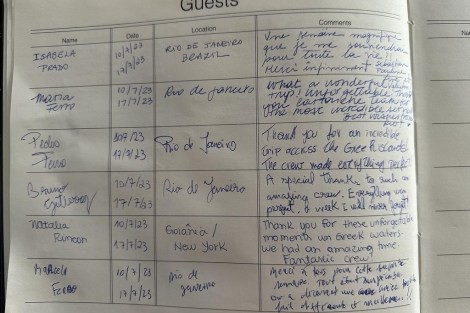 Guests
Name
Date
Location
Comments
ISABELA
PRADO
10/7/23
17/7/23
RIO DE JANEIRO
BRAZIL
Une semaine magnifique
que je me souviendrai
pour toute la vie!
Merci infiniment
Maria
Ferro
10/7/23
17/7/23
Rio de Janeiro
What a wonderful
trip! Unforgettable! Thank
you
the most incredible
Pedro
Ferro
10/7/23
17/7/23
Rio de Janeiro
Thank you for an incredible
trip across the Greek islands.
The crew made everything perfect
Bruno
10/7/23
17/7/23
Rio de Janeiro
A special thanks to such an
amazing crew. Everything was
perfect. A week I will never forget
Natalia
Rincon
10/7/23
17/7/23
Goiânia /
New York
Thank you for these unforgettable
moments in Greek waters
we had an amazing time.
Fantastic crew!
10/7/23
17/7/23
Rio de
Janeiro
Merci à tous pour cette superbe
semaine. Tout était
on a
Name